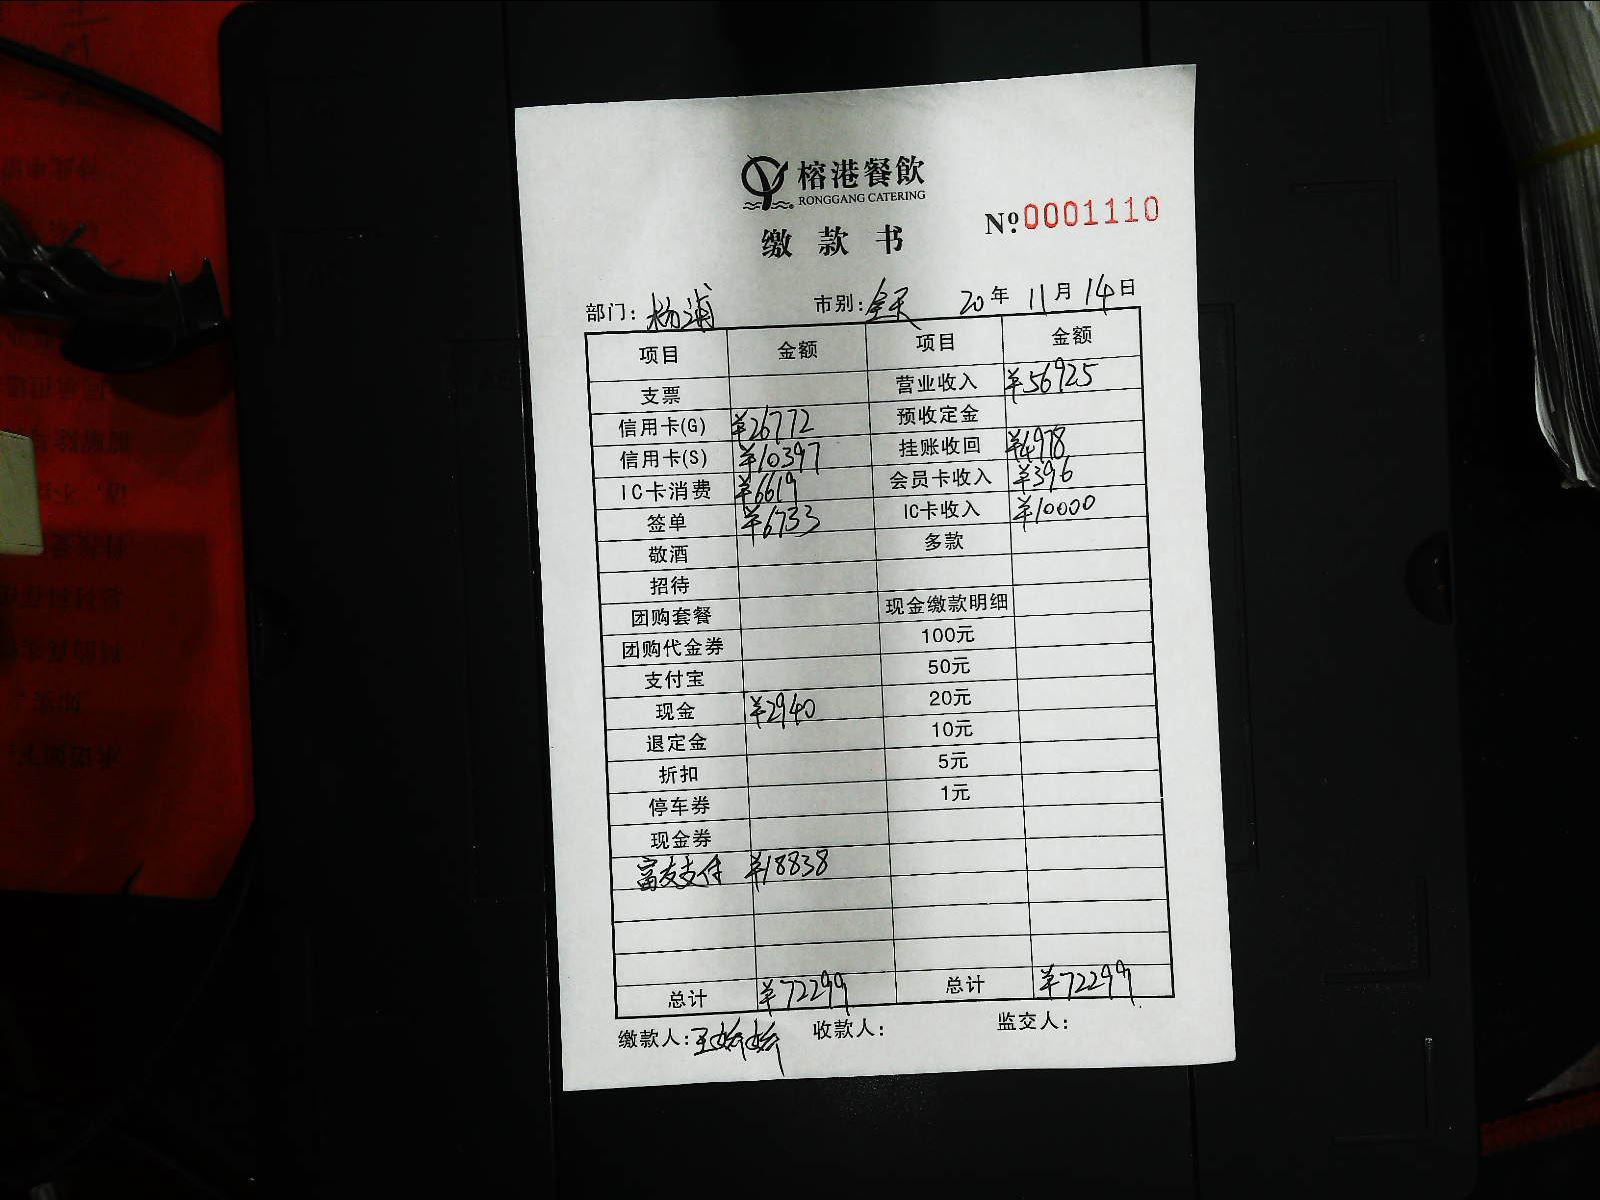 榕港餐飲
RONGGANG CATERING
缴款书
№ 0001110
部门: 杨浦 市别: 全天 20年 11月 14日
项目 金额 项目 金额
支票 营业收入 ¥56925
信用卡(G) ¥26772 预收定金
信用卡(S) ¥10397 挂账收回 ¥4978
IC卡消费 ¥6619 会员卡收入 ¥396
签单 ¥6733 IC卡收入 ¥10000
敬酒 多款
招待
团购套餐 现金缴款明细
团购代金券 100元
支付宝 50元
现金 ¥2940 20元
退定金 10元
折扣 5元
停车券 1元
现金券
富友支付 ¥18838
总计 ¥72299 总计 ¥72299
缴款人: 收款人: 监交人: